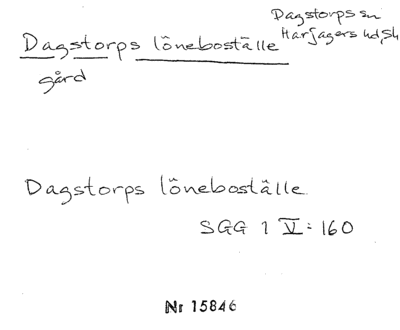 Dagstorps sn
Dagstorps löneboställe Harjagers hd, Sk
gård
Dagstorps löneboställe
SGG 1 V:160
Nr 15846